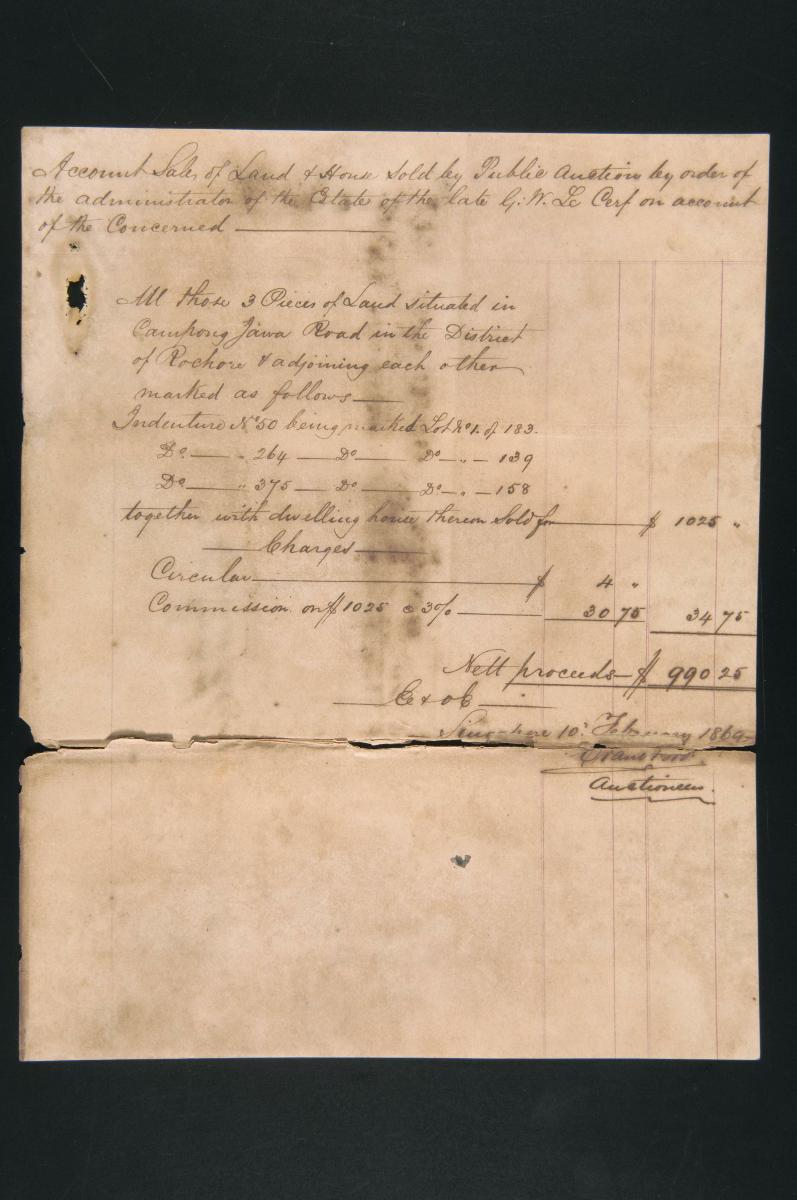 Account Sales of Land & House Sold by Public Auction by order of
the administrator of the Estate of the late G. W. Le Cerf on account
of the Concerned
All those 3 Pieces of Land situated in
Campong Jawa Road in the District
of Rochore & adjoining each other
marked as follows
Indenture No 50 being marked Lot No 1. of 183.
Do — " 264 — Do — Do — " — 139
Do — " 375 — Do — Do — " — 158
together with dwelling house thereon Sold for — $ 1025 "
Charges
Circular — $ 4 "
Commission on $ 1025 @ 3% — 30 75 34 75
Nett proceeds — $ 990 25
E & O E
10 February 1869
Auctioneers.